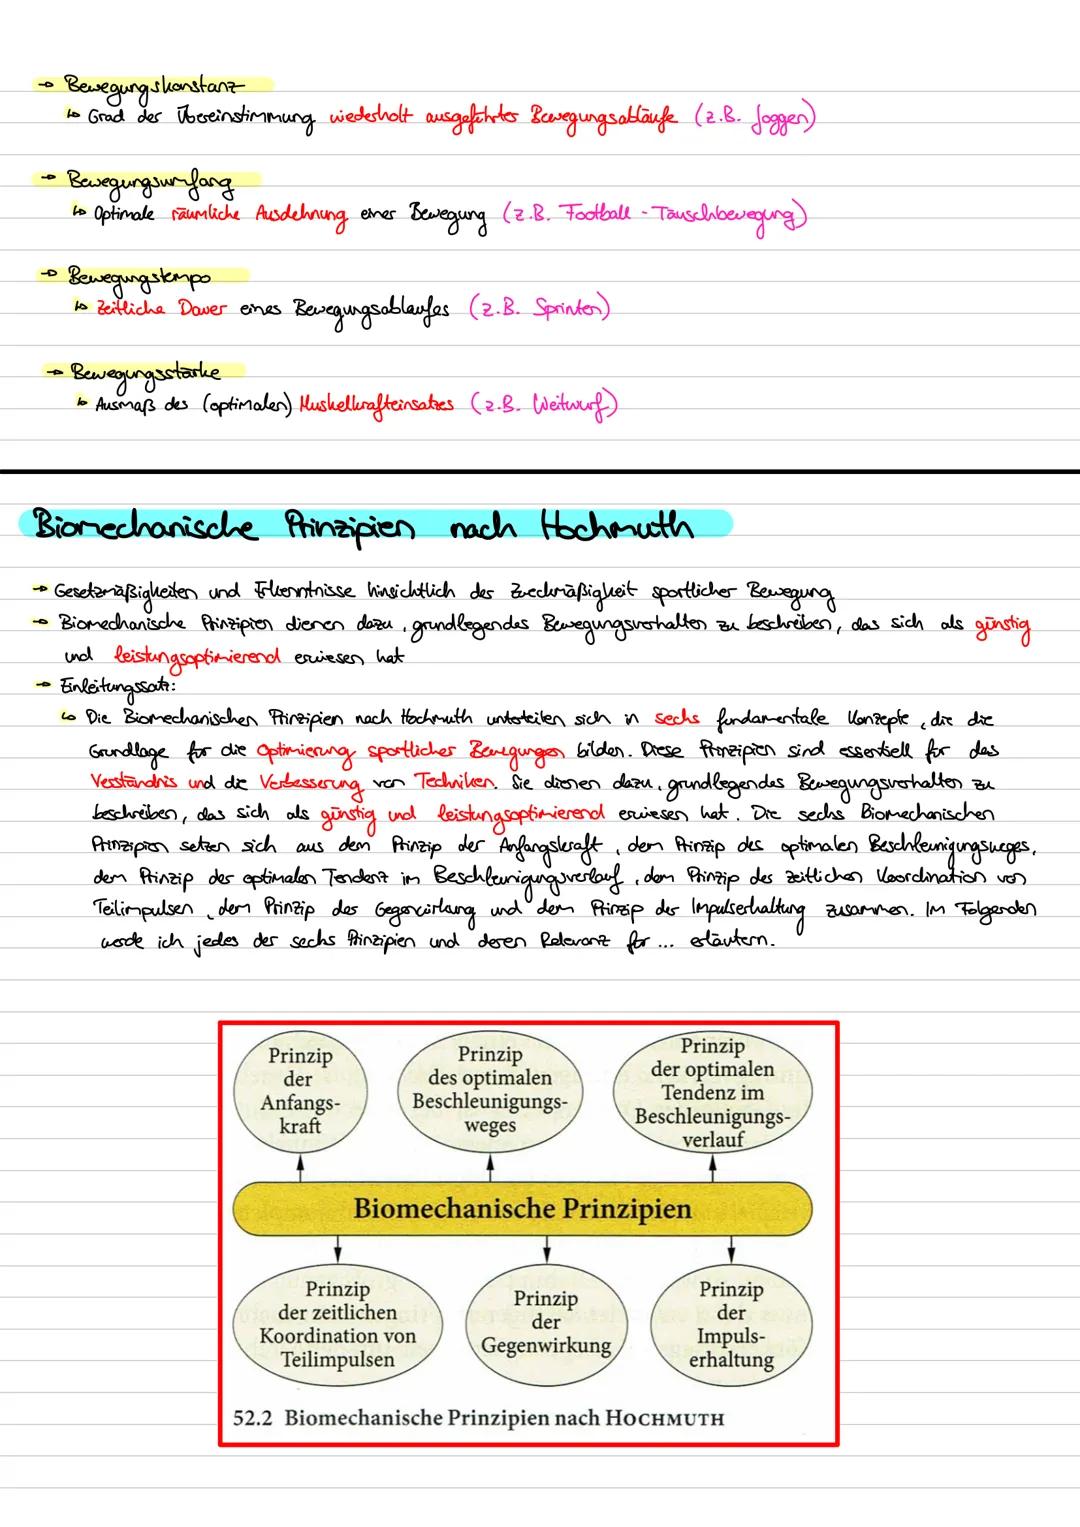 → Bewegungskonstanz
↳ Grad der Übereinstimmung wiederholt ausgeführter Bewegungsabläufe (z.B. Joggen)
→ Bewegungsumfang
↳ Optimale räumliche Ausdehnung einer Bewegung (z.B. Football - Täuschbewegung)
→ Bewegungstempo
↳ Zeitliche Dauer eines Bewegungsablaufes (z.B. Sprinten)
→ Bewegungsstärke
↳ Ausmaß des (optimalen) Muskelkrafteinsatzes (z.B. Weitwurf)
Biomechanische Prinzipien nach Hochmuth
→ Gesetzmäßigkeiten und Erkenntnisse hinsichtlich der Zweckmäßigkeit sportlicher Bewegung
→ Biomechanische Prinzipien dienen dazu, grundlegendes Bewegungsverhalten zu beschreiben, das sich als günstig
und leistungsoptimierend erwiesen hat
→ Einleitungssatz:
↳ Die Biomechanischen Prinzipien nach Hochmuth unterteilen sich in sechs fundamentale Konzepte, die die
Grundlage für die Optimierung sportlicher Bewegungen bilden. Diese Prinzipien sind essentiell für das
Verständnis und die Verbesserung von Techniken. Sie dienen dazu, grundlegendes Bewegungsverhalten zu
beschreiben, das sich als günstig und leistungsoptimierend erwiesen hat. Die sechs Biomechanischen
Prinzipien setzen sich aus dem Prinzip der Anfangskraft, dem Prinzip des optimalen Beschleunigungsweges,
dem Prinzip der optimalen Tendenz im Beschleunigungsverlauf, dem Prinzip der zeitlichen Koordination von
Teilimpulsen, dem Prinzip der Gegenwirkung und dem Prinzip der Impulserhaltung zusammen. Im Folgenden
werde ich jedes der sechs Prinzipien und deren Relevanz für ... erläutern.
Prinzip
der
Anfangs-
kraft
Prinzip
des optimalen
Beschleunigungs-
weges
Prinzip
der optimalen
Tendenz im
Beschleunigungs-
verlauf
Biomechanische Prinzipien
Prinzip
der zeitlichen
Koordination von
Teilimpulsen
Prinzip
der
Gegenwirkung
Prinzip
der
Impuls-
erhaltung
52.2 Biomechanische Prinzipien nach HOCHMUTH